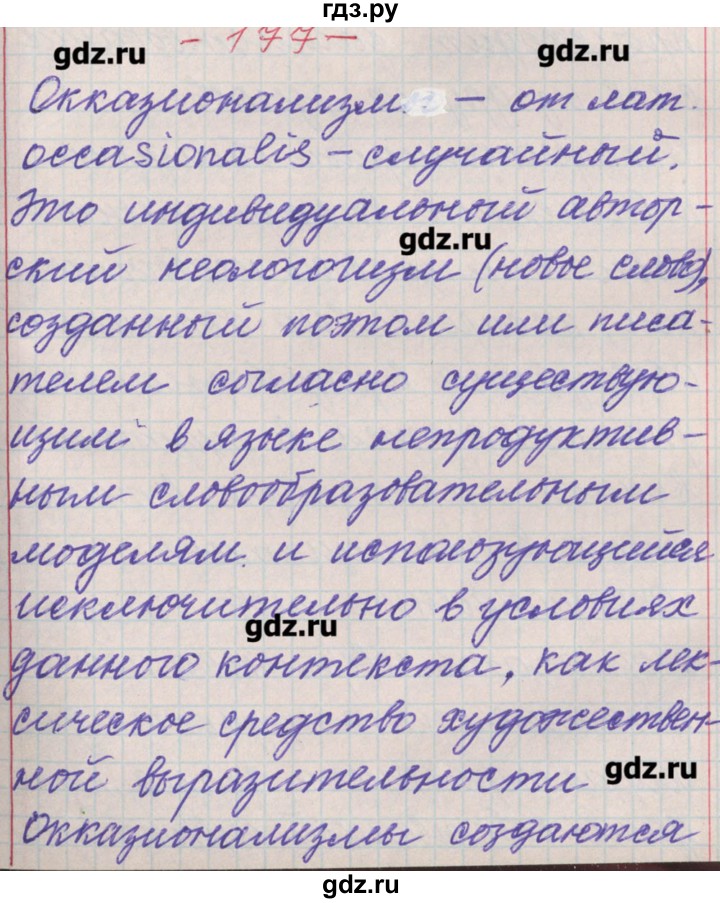 гдз.ру
- 177 -
gdz.ru gdz.ru
Окказионализм - от лат.
occasionalis - случайный.
Это индивидуальный автор-
gdz.ru
ский неологогизм (новое слово),
созданный поэтом или писа-
телем согласно существую-
щим в языке непродуктив-
ным словообразовательным
моделям и использующийся
исключительно в условиях
gdz.ru
данного контекста, как лек-
сическое средство художествен-
ной выразительности
gdz.ru
Окказионализмы создаются
gdz.ru